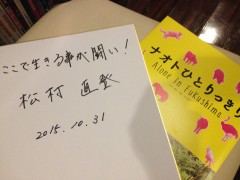 ここで生きる事が闘い！
松村 直登
2015.10.31
ナオトひとりっきり
Alone in Fukushima